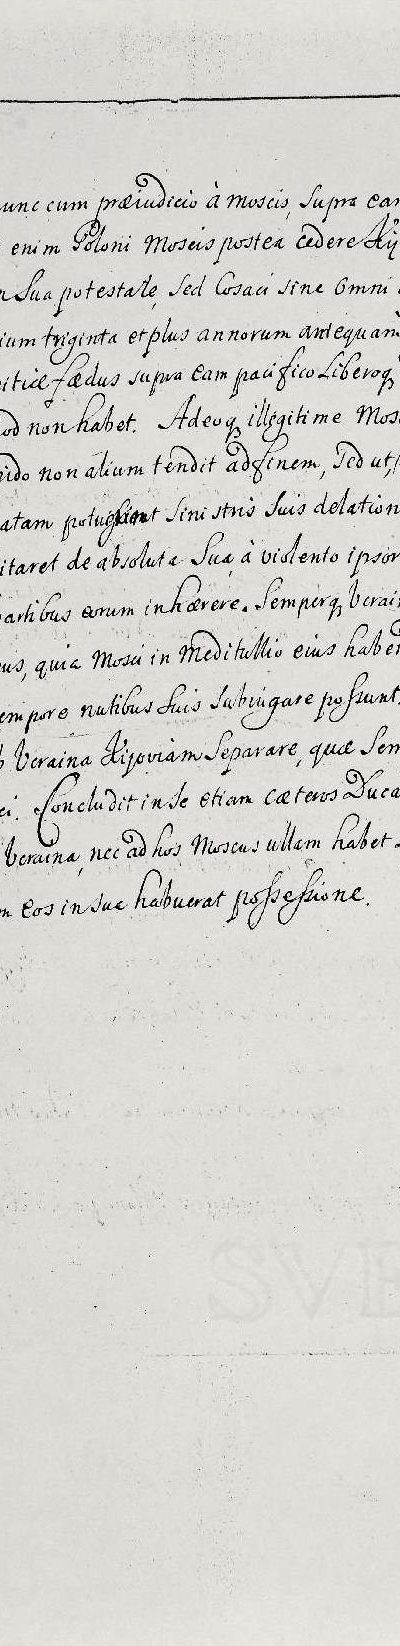 unc cum præiudicio à moscis, supra ear
enim Poloni Moscis postea cedere Kij
n sua potestate, sed Cosaci sine omni
ium triginta et plus annorum antequam
itiæ fædus supra eam pacifico Liberoq
od non habet. Adeoq illegitime Mos
ido non alium tendit ad finem, sed ut,
atam sinistris suis delation
itaret de absoluta sua, à violento ipsor
partibus eorum inhærere. Semperq Vcrai
us, quia Mosci in meditullio eius haben
empore nutibus suis subiugare possunt.
Vcraina Kijoviam separare, quæ sem
ci. Concludit in se etiam cæteros Duca
Vcraina, nec ad hos Moscus ullam habet
m eos in sua habuerat possessione.
SVE